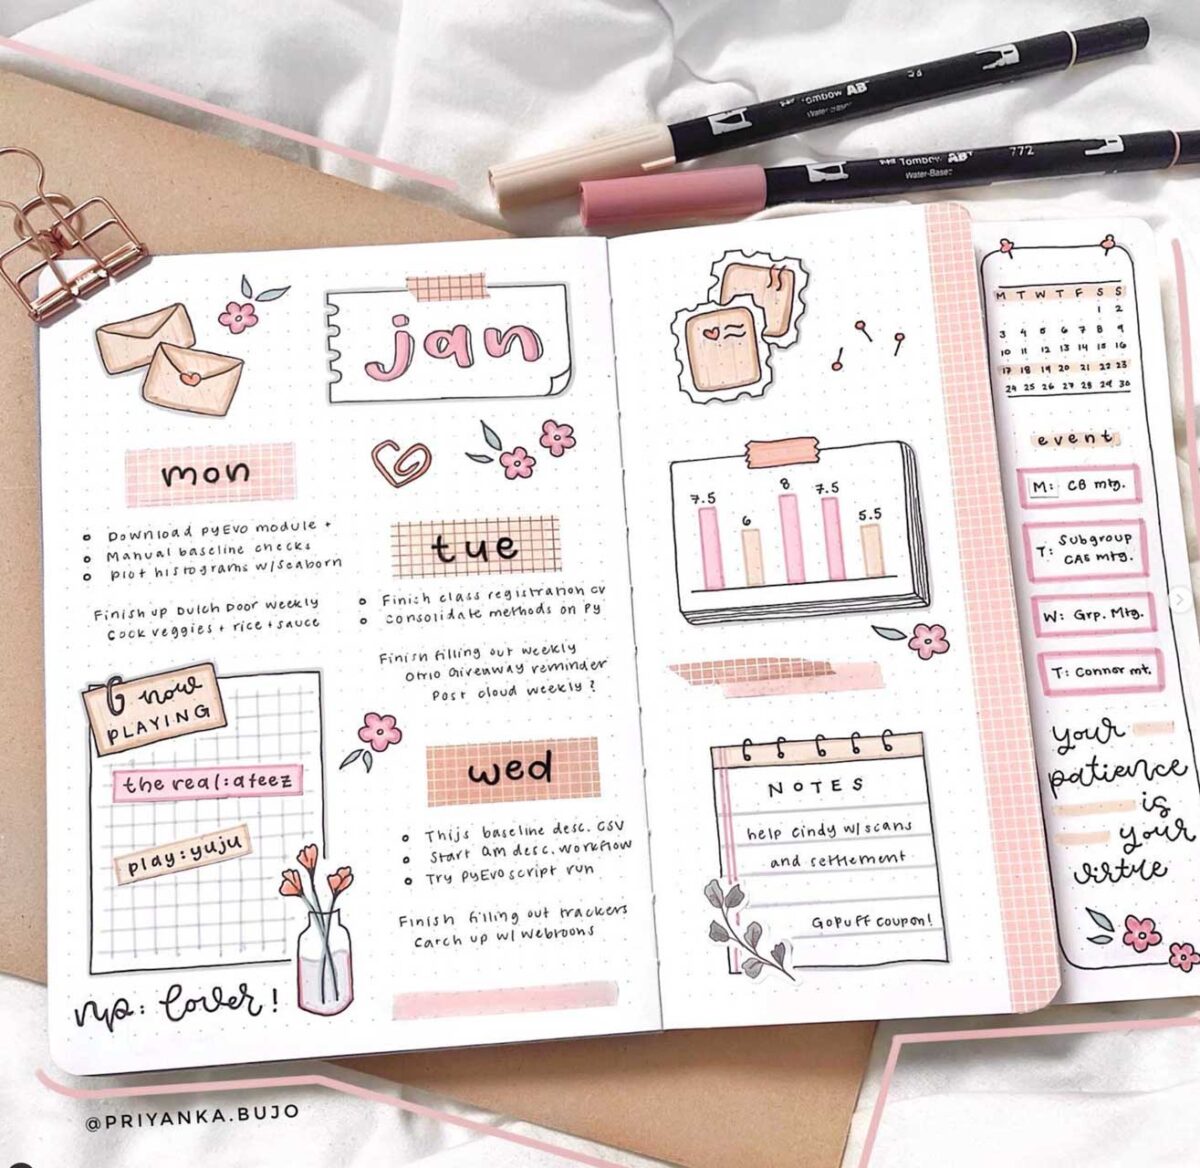 Tombow ABT
Water-Based
772
jan
mon
Download PyEvo module +
Manual baseline checks
Plot histograms w/seaborn
Finish up Dutch Door weekly
Cook veggies + rice + sauce
tue
Finish class registration CV
Consolidate methods on Py
Finish filling out weekly
Otrio Giveaway reminder
Post cloud weekly?
now
PLAYING
the real:ateez
play:yuju
np: Lover!
wed
Thijs baseline desc. CSV
Start QM desc. workflow
Try PyEvo script run
Finish filling out trackers
Catch up w/ Webtoons
7.5
6
8
7.5
5.5
NOTES
help cindy w/ scans
and settlement
Gopuff coupon!
M T W T F S S
1 2
3 4 5 6 7 8 9
10 11 12 13 14 15 16
17 18 19 20 21 22 23
24 25 26 27 28 29 30
event
M: CB mtg.
T: Subgroup
CAS mtg.
W: Grp. Mtg.
T: Connor mt.
your
patience
is
your
virtue
@PRIYANKA.BUJO